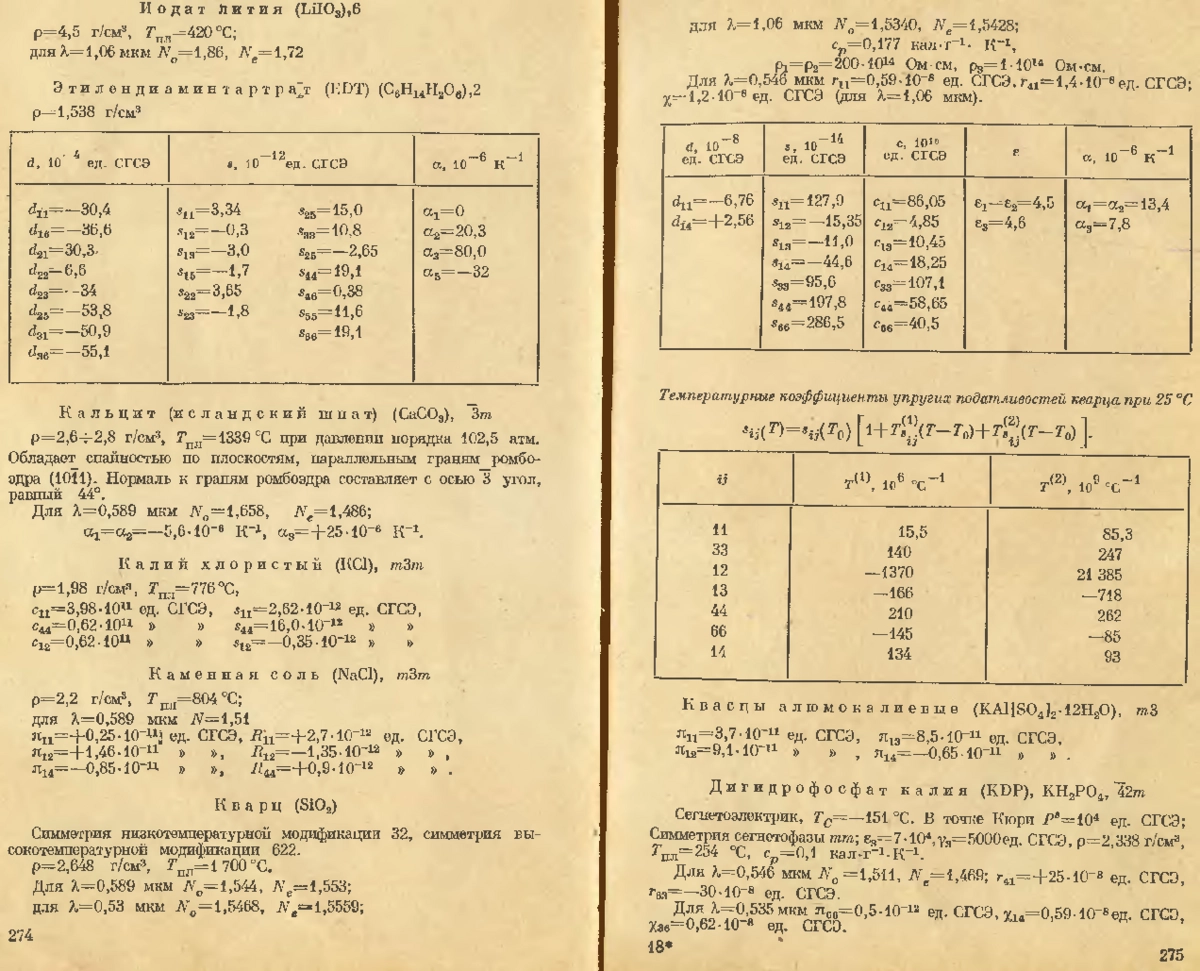 Иодат лития (LiIO₃),6
ρ=4,5 г/см³, Tпл=420 °C;
для λ=1,06 мкм Nₒ=1,86, Nₑ=1,72
Этилендиаминтартрат (EDT) (C₆H₁₄H₂O₆),2
ρ=1,538 г/см³
d, 10⁻⁴ ед. СГСЭ s, 10⁻¹² ед. СГСЭ α, 10⁻⁶ К⁻¹
d₁₁=—30,4 s₁₁=3,34 s₂₅=15,0 α₁=0
d₁₆=—36,6 s₁₂=—0,3 s₃₃=10,8 α₂=20,3
d₂₁=30,3 s₁₃=—3,0 s₂₅=—2,65 α₃=80,0
d₂₂=6,6 s₁₅=—1,7 s₄₄=19,1 α₅=—32
d₂₃=—34 s₂₂=3,65 s₄₆=0,38
d₂₅=—53,8 s₂₃=—1,8 s₅₅=11,6
d₃₁=—50,9 s₆₆=19,1
d₃₆=—55,1
Кальцит (исландский шпат) (CaCO₃), 3̄m
ρ=2,6÷2,8 г/см³, Tпл=1339 °C при давлении порядка 102,5 атм.
Обладает спайностью по плоскостям, параллельным граням ромбо-
эдра (101̄1). Нормаль к граням ромбоэдра составляет с осью 3̄ угол,
равный 44°.
Для λ=0,589 мкм Nₒ=1,658, Nₑ=1,486;
α₁=α₂=—5,6·10⁻⁶ К⁻¹, α₃=+25·10⁻⁶ К⁻¹.
Калий хлористый (KCl), m3m
ρ=1,98 г/см³, Tпл=776 °C,
c₁₁=3,98·10¹¹ ед. СГСЭ, s₁₁=2,62·10⁻¹² ед. СГСЭ,
c₄₄=0,62·10¹¹ » » s₄₄=16,0·10⁻¹² » »
c₁₂=0,62·10¹¹ » » s₁₂=—0,35·10⁻¹² » »
Каменная соль (NaCl), m3m
ρ=2,2 г/см³, Tпл=804 °C;
для λ=0,589 мкм N=1,51
π₁₁=+0,25·10⁻¹¹ ед. СГСЭ, R₁₁=+2,7·10⁻¹² ед. СГСЭ,
π₁₂=+1,46·10⁻¹¹ » », R₁₂=—1,35·10⁻¹² » » ,
π₁₄=—0,85·10⁻¹¹ » », R₄₄=+0,9·10⁻¹² » » .
Кварц (SiO₂)
Симметрия низкотемпературной модификации 32, симметрия вы-
сокотемпературной модификации 622.
ρ=2,648 г/см³, Tпл=1 700 °C.
Для λ=0,589 мкм Nₒ=1,544, Nₑ=1,553;
для λ=0,53 мкм Nₒ=1,5468, Nₑ=1,5559;
274
для λ=1,06 мкм Nₒ=1,5340, Nₑ=1,5428;
cₚ=0,177 кал·г⁻¹· К⁻¹,
ρ₁=ρ₂=200·10¹⁴ Ом·см, ρ₃=1·10¹⁴ Ом·см.
Для λ=0,546 мкм r₁₁=0,59·10⁻⁸ ед. СГСЭ, r₄₁=1,4·10⁻⁸ ед. СГСЭ;
χ=1,2·10⁻⁸ ед. СГСЭ (для λ=1,06 мкм).
d, 10⁻⁸ ед. СГСЭ s, 10⁻¹⁴ ед. СГСЭ c, 10¹⁰ ед. СГСЭ ε α, 10⁻⁶ К⁻¹
d₁₁=—6,76 s₁₁=127,9 c₁₁=86,05 ε₁=ε₂=4,5 α₁=α₂=13,4
d₁₄=+2,56 s₁₂=—15,35 c₁₂=4,85 ε₃=4,6 α₃=7,8
s₁₃=—11,0 c₁₃=10,45
s₁₄=—44,6 c₁₄=18,25
s₃₃=95,6 c₃₃=107,1
s₄₄=197,8 c₄₄=58,65
s₆₆=286,5 c₆₆=40,5
Температурные коэффициенты упругих податливостей кварца при 25 °C
sᵢⱼ(T)=sᵢⱼ(T₀) [1+T⁽¹⁾sᵢⱼ(T—T₀)+T⁽²⁾sᵢⱼ(T—T₀) ].
ij T⁽¹⁾, 10⁶ °C⁻¹ T⁽²⁾, 10⁹ °C⁻¹
11 15,5 85,3
33 140 247
12 —1370 21 385
13 —166 —718
44 210 262
66 —145 —85
14 134 93
Квасцы алюмокалиевые (KAl[SO₄]₂·12H₂O), m3
π₁₁=3,7·10⁻¹¹ ед. СГСЭ, π₁₃=8,5·10⁻¹¹ ед. СГСЭ,
π₁₂=9,1·10⁻¹¹ » » , π₁₄=—0,65·10⁻¹¹ » » .
Дигидрофосфат калия (KDP), KH₂PO₄, 4̄2m
Сегнетоэлектрик, T_C=—151 °C. В точке Кюри Pˢ=10⁴ ед. СГСЭ;
Симметрия сегнетофазы mm; ε₃=7·10⁴, γ₃=5000 ед. СГСЭ, ρ=2,338 г/см³,
Tпл=254 °C, cₚ=0,1 кал·г⁻¹·К⁻¹.
Для λ=0,546 мкм Nₒ=1,511, Nₑ=1,469; r₄₁=+25·10⁻⁸ ед. СГСЭ,
r₆₃=—30·10⁻⁸ ед. СГСЭ.
Для λ=0,535 мкм π₆₆=0,5·10⁻¹² ед. СГСЭ, χ₁₄=0,59·10⁻⁸ ед. СГСЭ,
χ₃₆=0,62·10⁻⁸ ед. СГСЭ.
18*
275